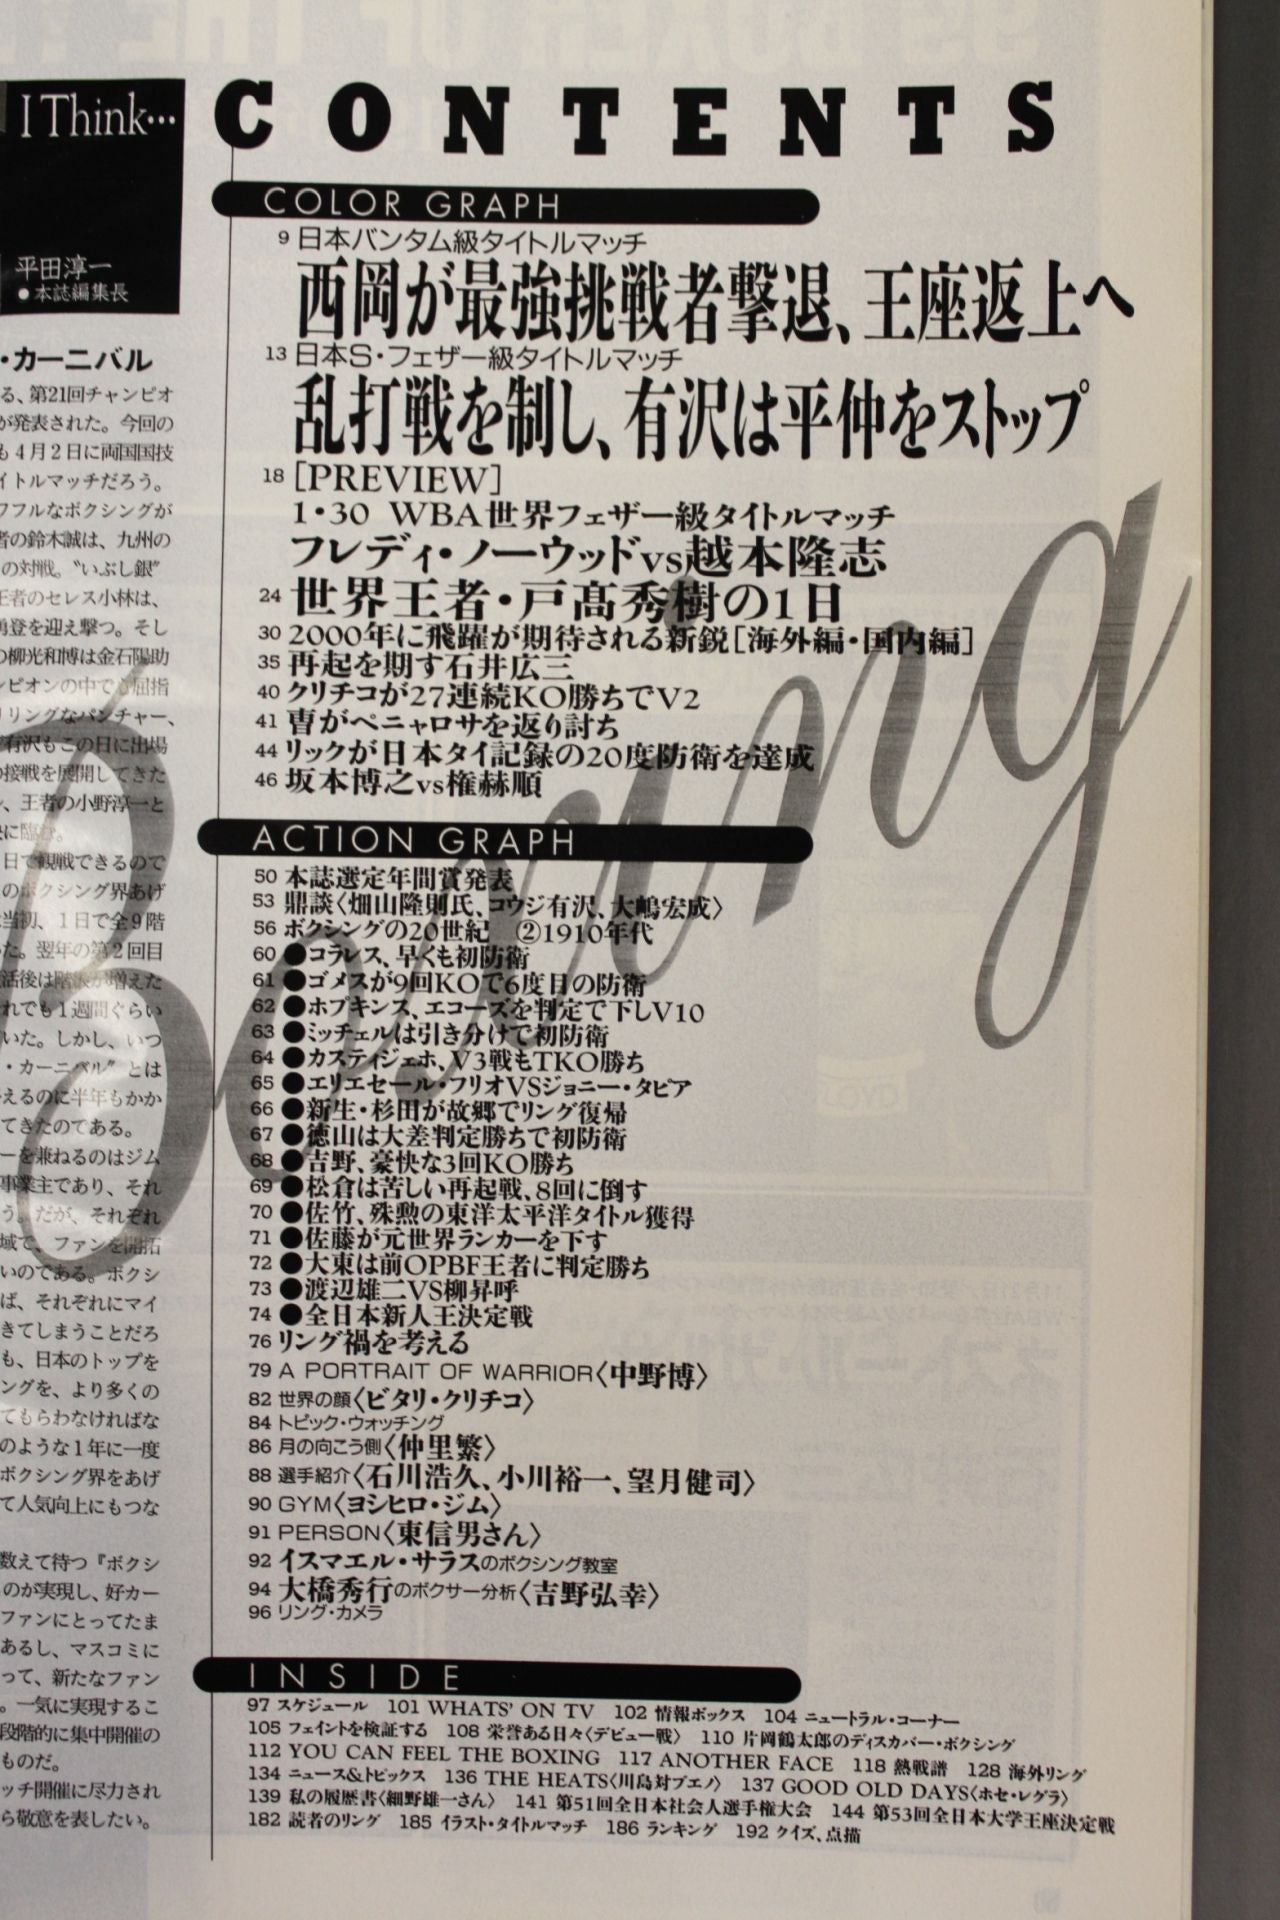 I Think…
平田淳一
●本誌編集長
・カーニバル
る、第21回チャンピオ
が発表された。今回の
も4月2日に両国国技
イトルマッチだろう。
フフルなボクシングが
者の鈴木誠は、九州の
の対戦。〝いぶし銀〟
王者のセレス小林は、
勇登を迎え撃つ。そし
の柳光和博は金石陽助
ンピオンの中で心屈指
リリングなパンチャー、
有沢もこの日に出場
の接戦を展開してきた
、王者の小野淳一と
に臨む。
日で観戦できるので
のボクシング界あげ
当初、1日で全9階
た。翌年の第2回目
活後は階級が増えた
れでも1週間ぐらい
いた。しかし、いつ
・カーニバル〟とは
えるのに半年もかか
てきたのである。
ーを兼ねるのはジム
事業主であり、それ
う。だが、それぞれ
域で、ファンを開拓
いのである。ボクシ
ば、それぞれにマイ
きてしまうことだろ
も、日本のトップを
ングを、より多くの
てもらわなければな
のような1年に一度
ボクシング界をあげ
て人気向上にもつな
数えて待つ『ボクシ
のが実現し、好カー
ファンにとってたま
あるし、マスコミに
って、新たなファン
。一気に実現するこ
段階的に集中開催の
ものだ。
ッチ開催に尽力され
ら敬意を表したい。
CONTENTS
Boxing
COLOR GRAPH
9 日本バンタム級タイトルマッチ
西岡が最強挑戦者撃退、王座返上へ
13 日本S・フェザー級タイトルマッチ
乱打戦を制し、有沢は平仲をストップ
18 [PREVIEW]
1・30 WBA世界フェザー級タイトルマッチ
フレディ・ノーウッドvs越本隆志
24 世界王者・戸髙秀樹の1日
30 2000年に飛躍が期待される新鋭[海外編・国内編]
35 再起を期す石井広三
40 クリチコが27連続KO勝ちでV2
41 曺がペニャロサを返り討ち
44 リックが日本タイ記録の20度防衛を達成
46 坂本博之vs権赫順
ACTION GRAPH
50 本誌選定年間賞発表
53 鼎談〈畑山隆則氏、コウジ有沢、大嶋宏成〉
56 ボクシングの20世紀 ②1910年代
60 ●コラレス、早くも初防衛
61 ●ゴメスが9回KOで6度目の防衛
62 ●ホプキンス、エコーズを判定で下しV10
63 ●ミッチェルは引き分けで初防衛
64 ●カスティジェホ、V3戦もTKO勝ち
65 ●エリエセール・フリオVSジョニー・タピア
66 ●新生・杉田が故郷でリング復帰
67 ●徳山は大差判定勝ちで初防衛
68 ●吉野、豪快な3回KO勝ち
69 ●松倉は苦しい再起戦、8回に倒す
70 ●佐竹、殊勲の東洋太平洋タイトル獲得
71 ●佐藤が元世界ランカーを下す
72 ●大東は前OPBF王者に判定勝ち
73 ●渡辺雄二VS柳昇呼
74 ●全日本新人王決定戦
76 リング禍を考える
79 A PORTRAIT OF WARRIOR〈中野博〉
82 世界の顔〈ビタリ・クリチコ〉
84 トピック・ウォッチング
86 月の向こう側〈仲里繁〉
88 選手紹介〈石川浩久、小川裕一、望月健司〉
90 GYM〈ヨシヒロ・ジム〉
91 PERSON〈東信男さん〉
92 イスマエル・サラスのボクシング教室
94 大橋秀行のボクサー分析〈吉野弘幸〉
96 リング・カメラ
INSIDE
97 スケジュール 101 WHATS' ON TV 102 情報ボックス 104 ニュートラル・コーナー
105 フェイントを検証する 108 栄誉ある日々〈デビュー戦〉 110 片岡鶴太郎のディスカバー・ボクシング
112 YOU CAN FEEL THE BOXING 117 ANOTHER FACE 118 熱戦譜 128 海外リング
134 ニュース&トピックス 136 THE HEATS〈川島対ブエノ〉 137 GOOD OLD DAYS〈ホセ・レグラ〉
139 私の履歴書〈細野雄一さん〉 141 第51回全日本社会人選手権大会 144 第53回全日本大学王座決定戦
182 読者のリング 185 イラスト・タイトルマッチ 186 ランキング 192 クイズ、点描